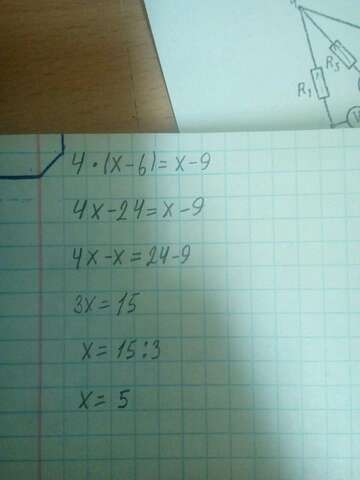 R₁
R₃
4 · (x - 6) = x - 9
4x - 24 = x - 9
4x - x = 24 - 9
3x = 15
x = 15 : 3
x = 5